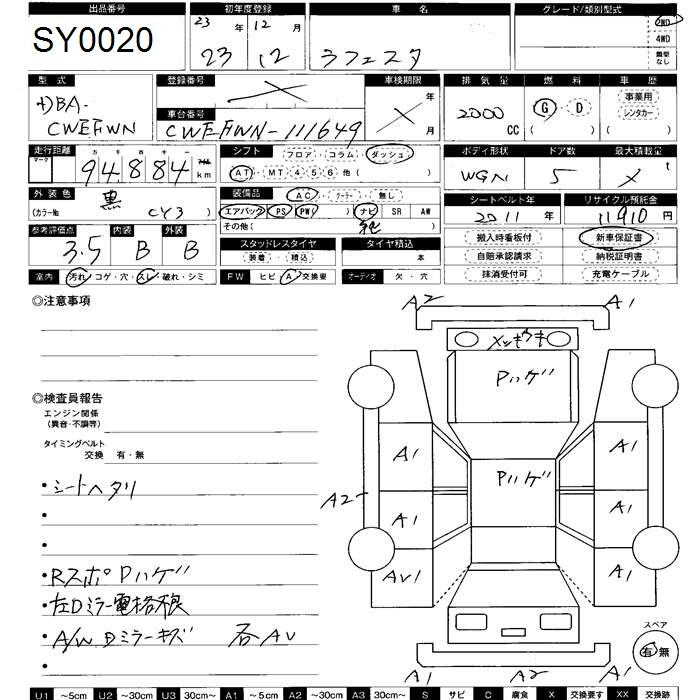 出品番号 初年度登録 車名 グレード/類別型式
SY0020 23年 12月 2WD
23 12 ラフェスタ 4WD
類型なし
型式 登録番号 車検期限 排気量 燃料 車歴
DBA- X 年 事業用
CWEFWN 車台番号 X 2000 G・D レンタカー
CWEFWN-111649 月 CC ( ) ( )
走行距離 シフト フロア・コラム・ダッシュ ボディ形状 ドア数 最大積載量
マーク 万 千 百 十 一
94884 km AT・MT 4 5 6 他( ) WGN 5 X
外装色 装備品 AC・クーラー・無し シートベルト年 リサイクル預託金
黒 2011年 11910円
(カラー№ CY3) エアバック PS PW( ) ナビ SR AW
その他( 純 )
参考評価点 内装 外装 搬入時看板付 新車保証書
3.5 B B スタッドレスタイヤ タイヤ積込 自賠承認請求 納税証明書
装着・積込 本 抹消受付可 充電ケーブル
室内 汚れ・コゲ・穴・スレ・破れ・シミ FW ヒビ・A・交換要 オーディオ 欠・穴
◎注意事項
A2 A1
メッキウキ
Pハゲ
◎検査員報告
エンジン関係
(異音・不調等)
タイミングベルト
交換 有・無
A1 Pハゲ A1
・シートヘタリ
A2
A1 A1
・RスポPハゲ
AV1 A1
・左Dミラー電格不良
・A/W Dミラーキズ 各AV
スペア
有 無
A1 A2 A1
U1 ～5cm U2 ～30cm U3 30cm～ A1 ～5cm A2 ～30cm A3 30cm～ S サビ C 腐食 X 交換要す XX 交換跡